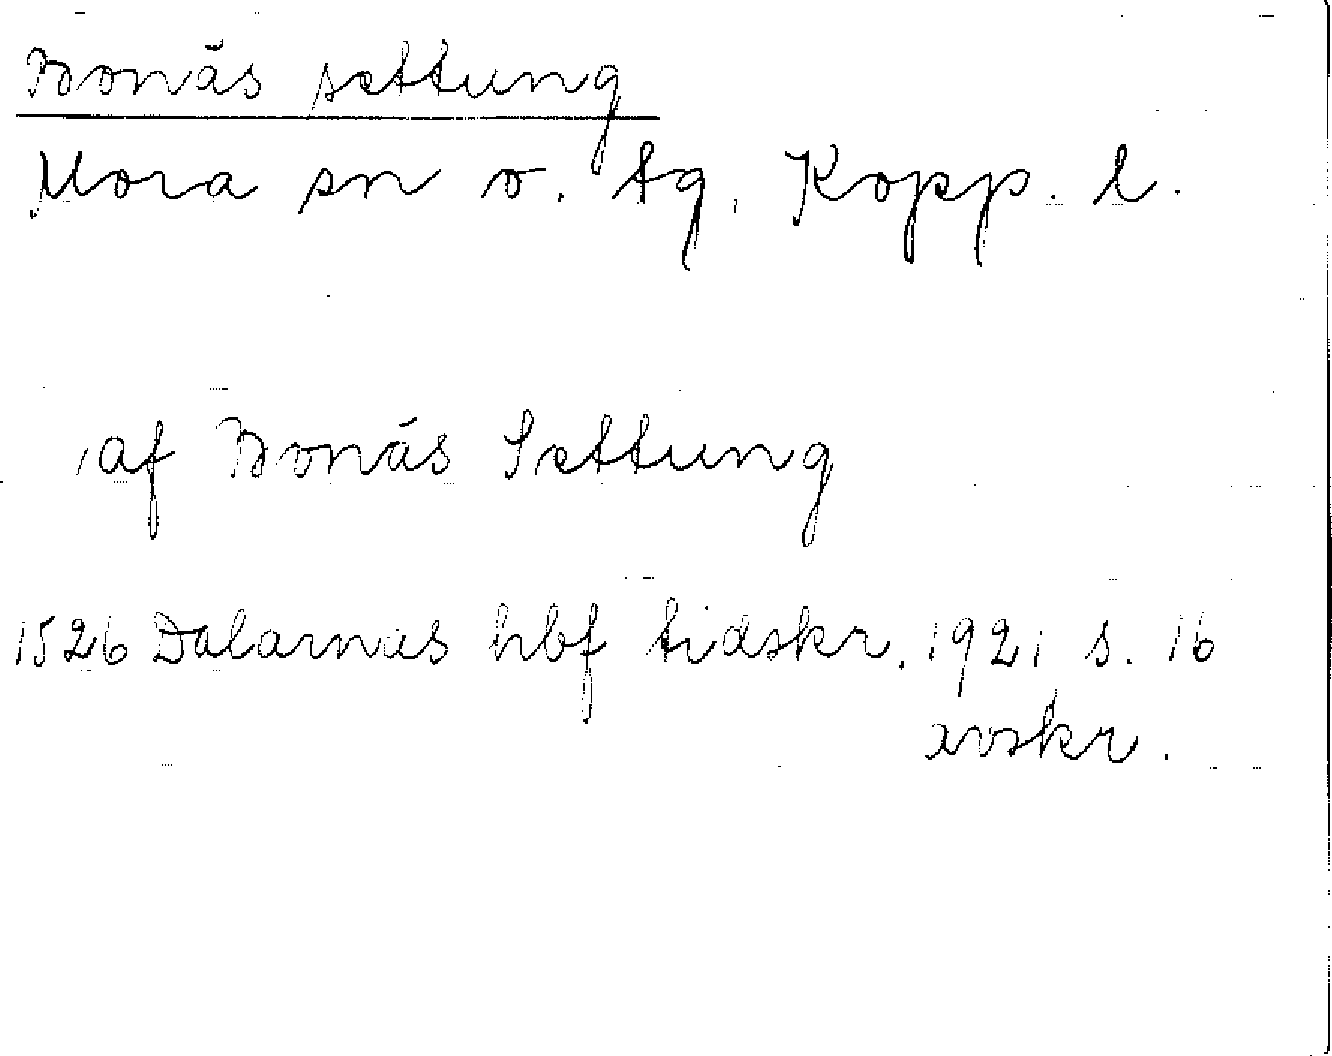 Bonäs settung
Mora sn o. tg. Kopp. l.
af Bonäs Settung
1526 Dalarnas hbf tidskr. 1921 s. 16
avskr.